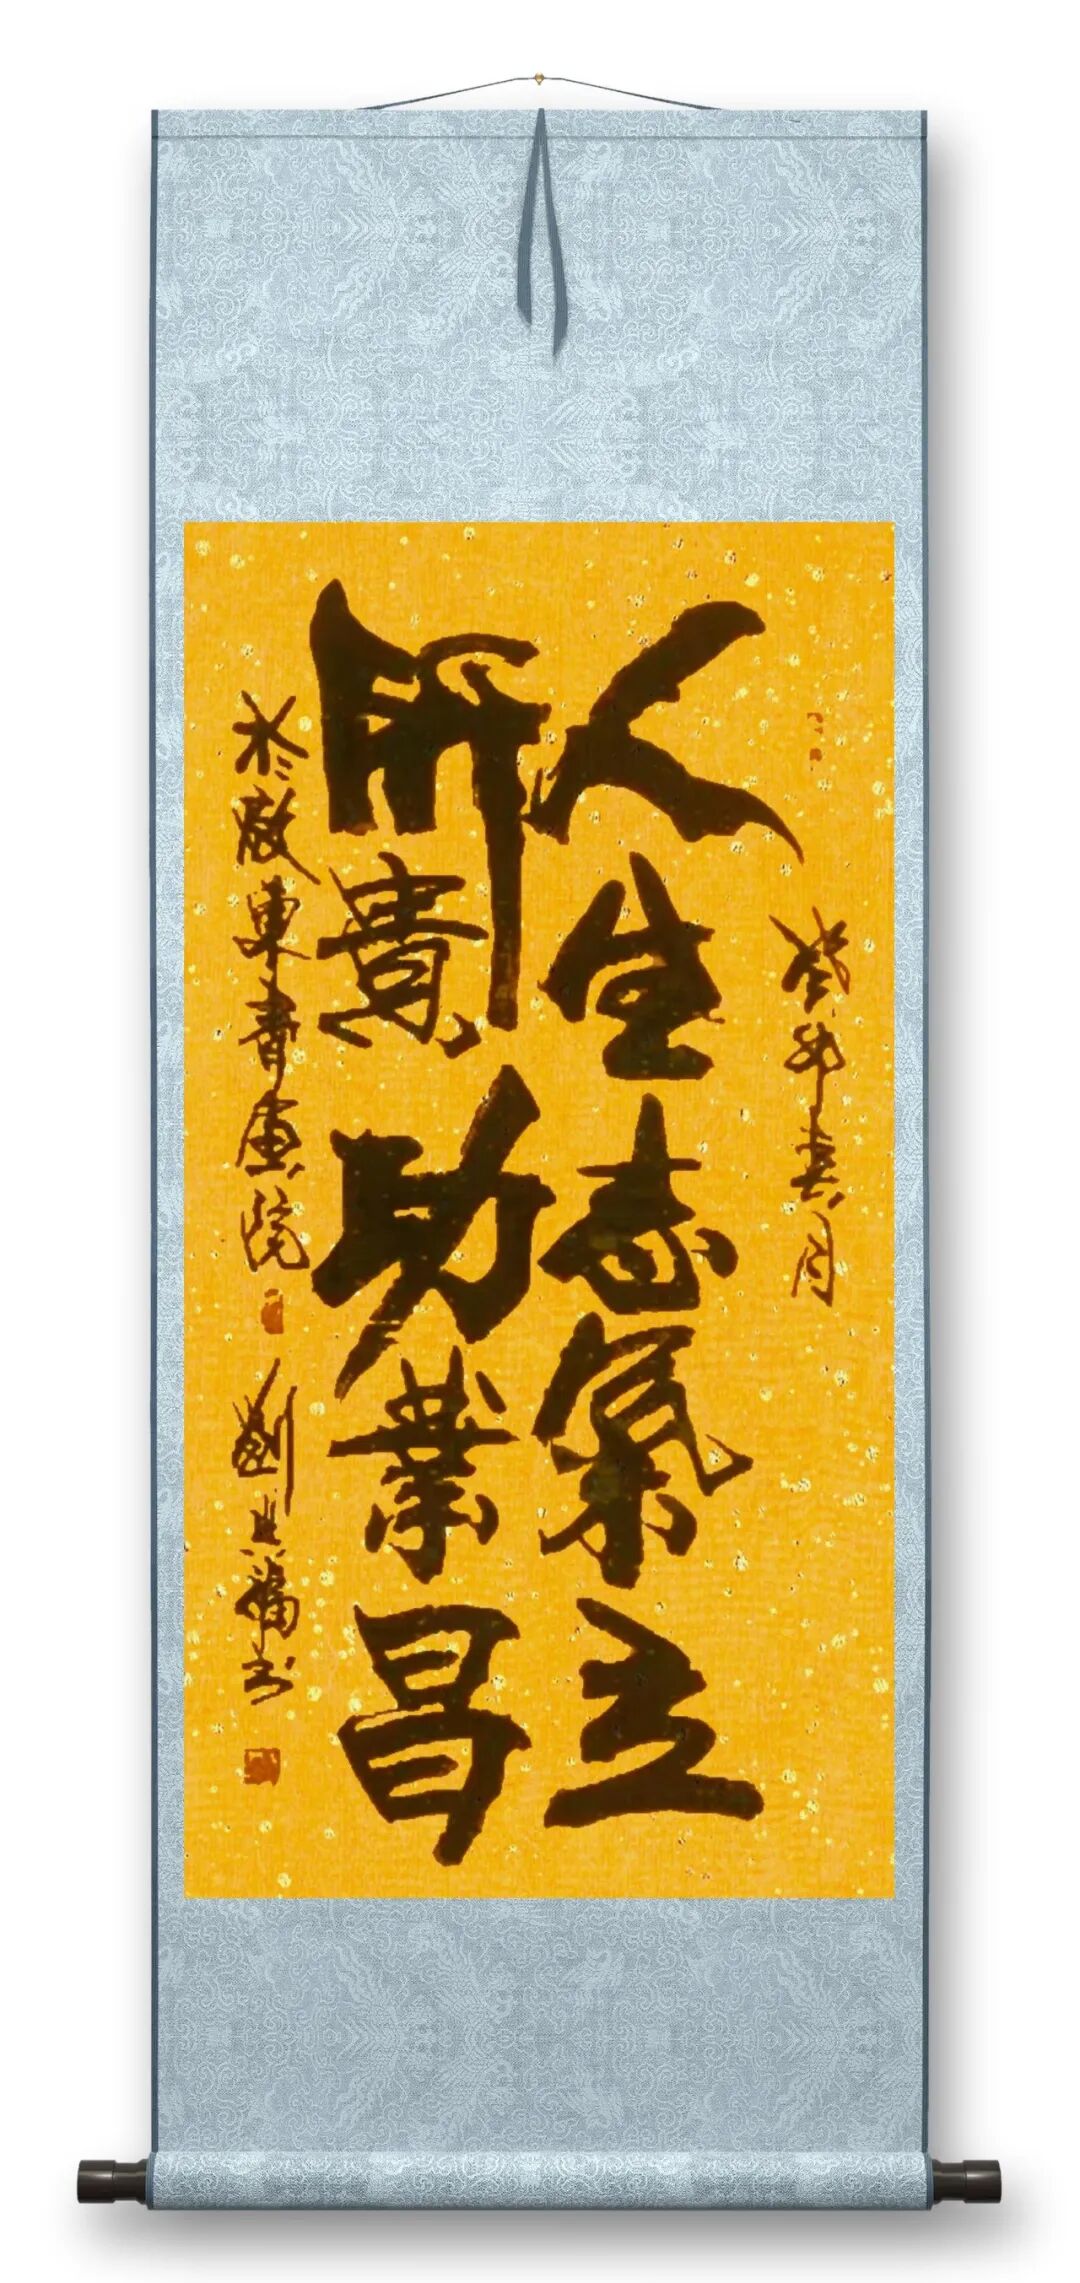 癸卯春月
人生志氣立
所貴功業昌
於東書畫院
劉福書